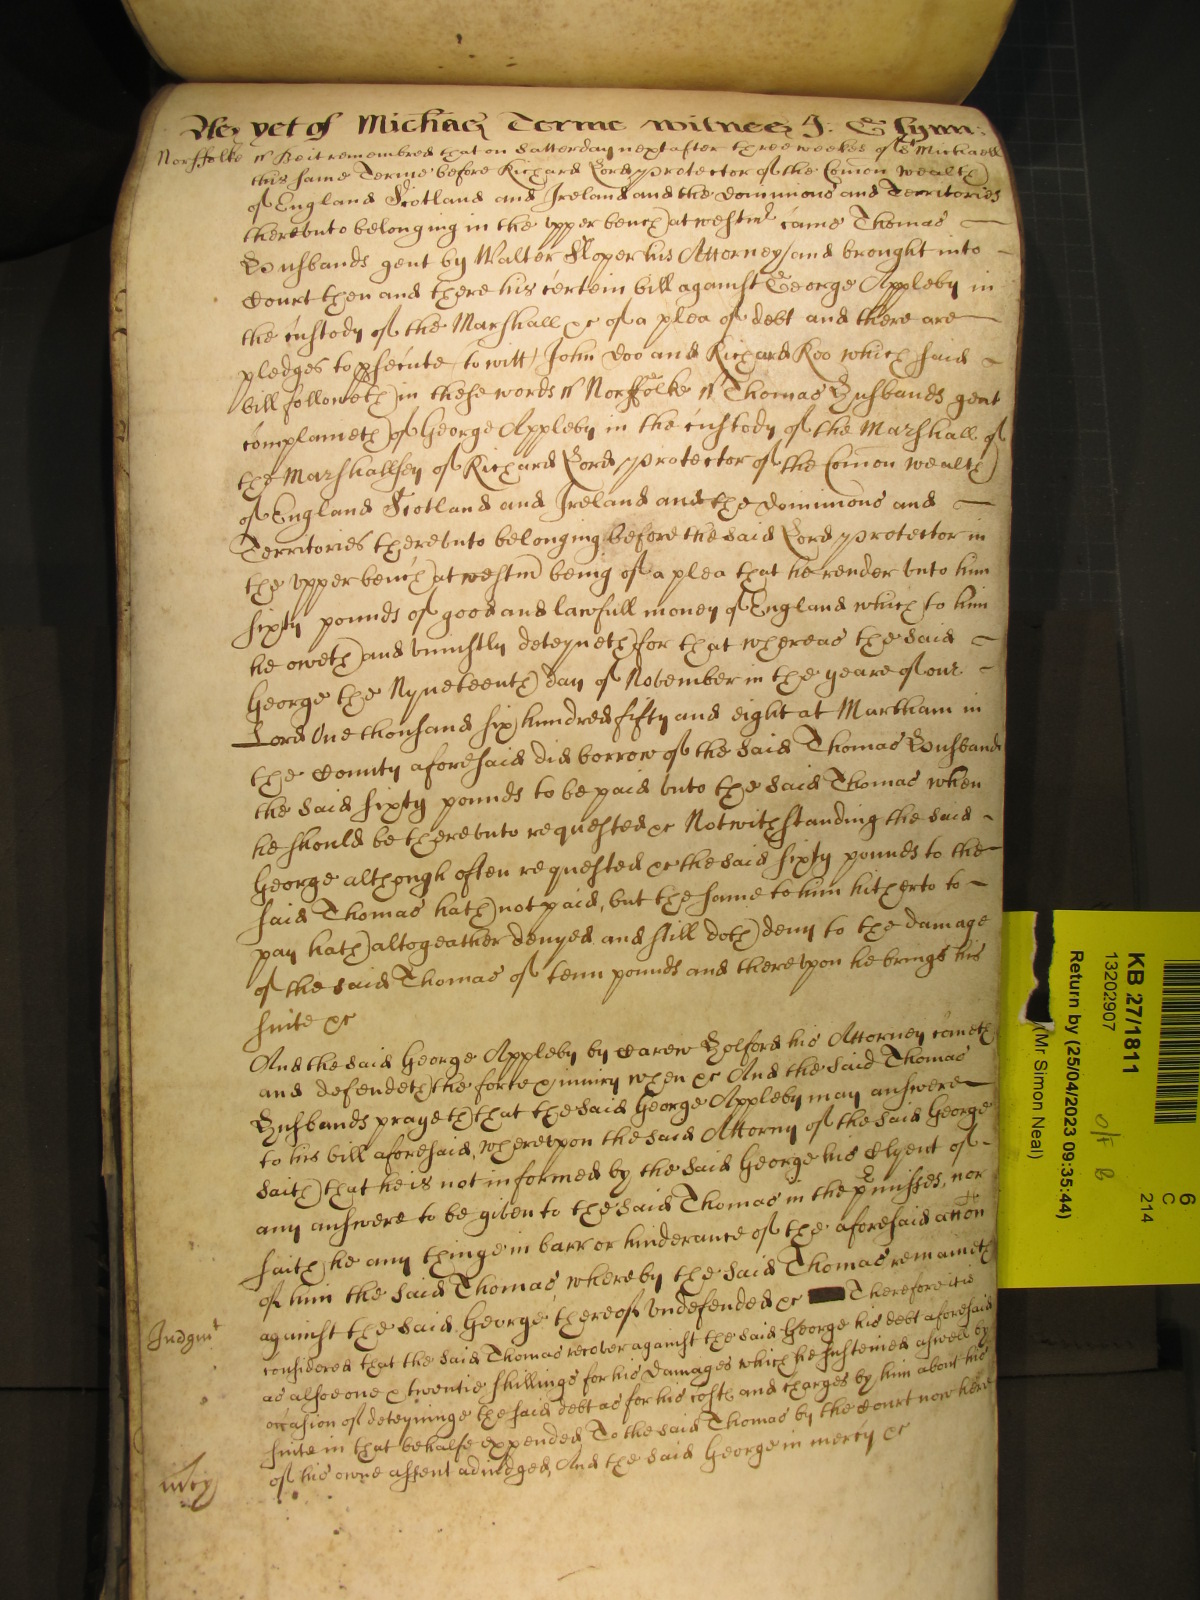 As yet of Michas Terme witnes J: Glynn:
Norffolke ss Be it remembred that on Satterday next after three weekes of St Michaell
this same Terme before Richard Lord protector of the Comon wealth
of England Scotland and Ireland and the dominions and Territories
therevnto belonging in the vpper bench at westmr came Thomas
Husbands gent by Walter Sloper his Attorney and brought into
Court then and there his certein bill against George Appleby in
the custody of the Marshall &c of a plea of debt and there are
pledges to psecute to witt John Doo and Richard Roo which said
bill followeth in these words ss Norffolke ss Thomas Husbands gent
complaineth of George Appleby in the custody of the Marshall of
the Marshallsey of Richard Lord protector of the Comon wealth
of England Scotland and Ireland and the dominions and
Territories therevnto belonging before the said Lord protector in
the vpper bench at westmr being of a plea that he render vnto him
sixty pounds of good and lawfull money of England which to him
he oweth and vniustly deteyneth for that whereas the said
George the Nyneteenth day of November in the yeare of our
Lord One thousand six hundred fifty and eight at Markham in
the County aforesaid did borrow of the said Thomas Husbands
the said sixty pounds to be paid vnto the said Thomas when
he should be therevnto requested &c Notwithstanding the said
George although often requested &c the said sixty pounds to the
said Thomas hath not paid, but the same to him hitherto to
pay hath altogeather denyed and still doth deny to the damage
of the said Thomas of tenn pounds and therevpon he brings his
suite &c
And the said George Appleby by Carew Holford his Attorney cometh
and defendeth the force & iniury when &c And the said Thomas
Husbands prayeth that the said George Appleby may answere
to his bill aforesaid, wherevpon the said Attorny of the said George
saith that he is not informed by the said George his Clyent of
any answere to be given to the said Thomas in the pmisses, nor
saith he any thinge in barr or hinderance of the aforesaid accon
of him the said Thomas, whereby the said Thomas remaineth
against the said George thereof vndefended &c Therefore it is
Judgmt
considered that the said Thomas recover against the said George his debt aforesaid
as alsoe one & twentie shillings for his damages which he susteined aswell by
occasion of deteyninge the said debt as for his costs and charges by him about his
suite in that behalfe expended To the said Thomas by the Court now here
mcy
of his owne assent adiudged, And the said George in mercy &c
KB 27/1811
13202907
Return by (25/04/2023 09:35:44)
(Mr Simon Neal)
6
C
214